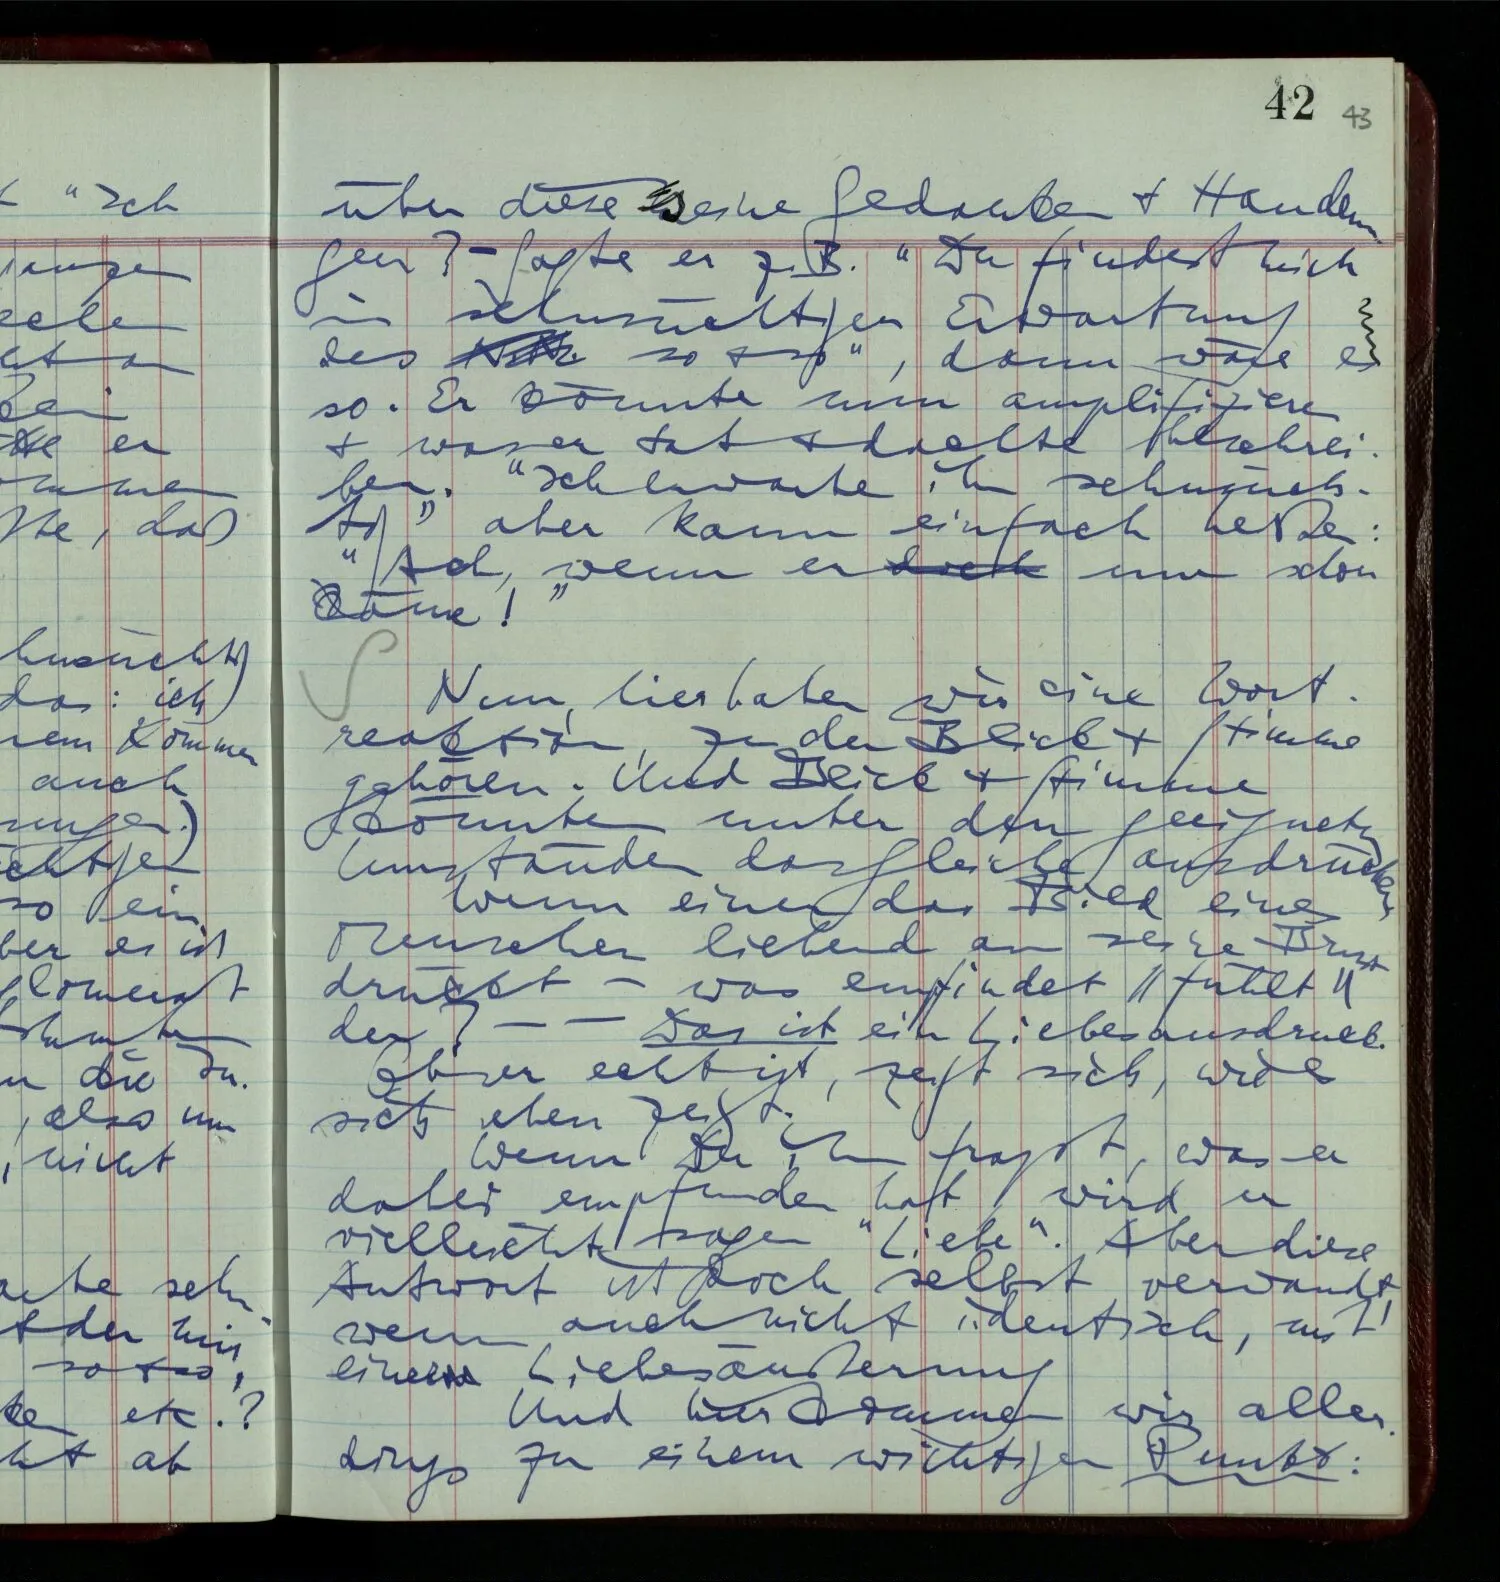 42 43
"Ich
über diese seine Gedanken + Handlun
gen? – Sagte er z.B. "Du findest mich
in sehnsüchtiger Erwartung
des so + so", dann wäre es
so. Er könnte nun amplifizieren
+ was er tat + dachte beschrei-
ben. "Ich erwarte ihn sehnsüch-
tig" aber kann einfach heißen:
"Ach, wenn er doch nur schon
käme!"
Nun, hier haben wir eine Wort-
reaktion, zu der Blick + Stimme
gehören. Und Blick + Stimme
könnten unter den geeigneten
Umständen das gleiche ausdrücken
Wenn einer das Bild eines
Menschen liebend an seine Brust
drückt – was empfindet // fühlt //
der? – – Das ist ein Liebesausdruck.
Ob er echt ist, zeigt sich, wie es
sich eben zeigt.
Wenn Du ihn fragst, was er
dabei empfunden hat, wird er
vielleicht sagen "Liebe". Aber diese
Antwort ist doch selbst verwandt,
wenn auch nicht identisch, mit
einer Liebesäußerung
Und hier kommen wir aller-
dings zu einem wichtigen Punkt:
er
daß
das: ich
Kommen
auch
so ein
aber es ist
die Du
, also nun
, nicht
sehn
oder
so + so,
etc.?
ab